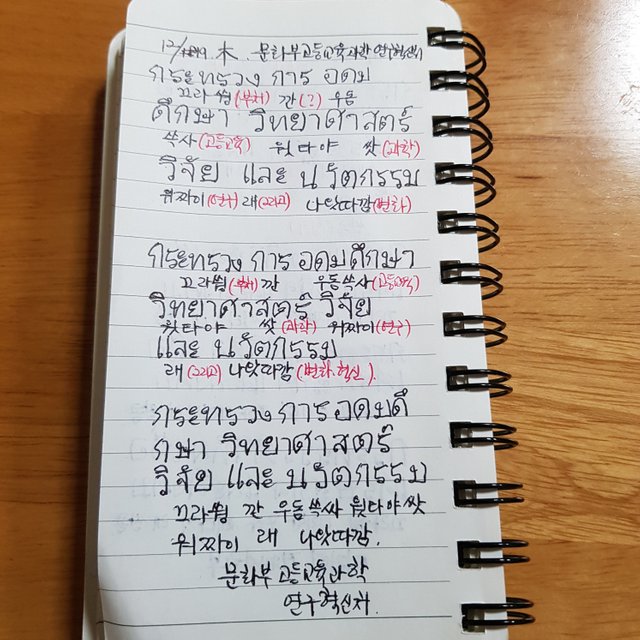 12/19. 木. 문화부고등교육과학연구혁신처
กระทรวง การ อุดม
끄라쑹(부처) 깐(?) 우돔
ศึกษา วิทยาศาสตร์
쓱사(고등교육) 윗타야 쌋(과학)
วิจัย และ นวัตกรรม
위짜이(연구) 래(그리고) 나왓따깜(변화)
กระทรวง การ อุดมศึกษา
끄라쑹(부처) 깐 우돔쓱사(고등교육)
วิทยาศาสตร์ วิจัย
윗타야 쌋(과학) 위짜이(연구)
และ นวัตกรรม
래(그리고) 나왓따깜(변화.혁신).
กระทรวง การ อุดมศึ
กษา วิทยาศาสตร์
วิจัย และ นวัตกรรม
끄라쑹 깐 우돔쓱싸 윗타야쌋
위짜이 래 나왓따깜.
문화부고등교육과학
연구혁신처.